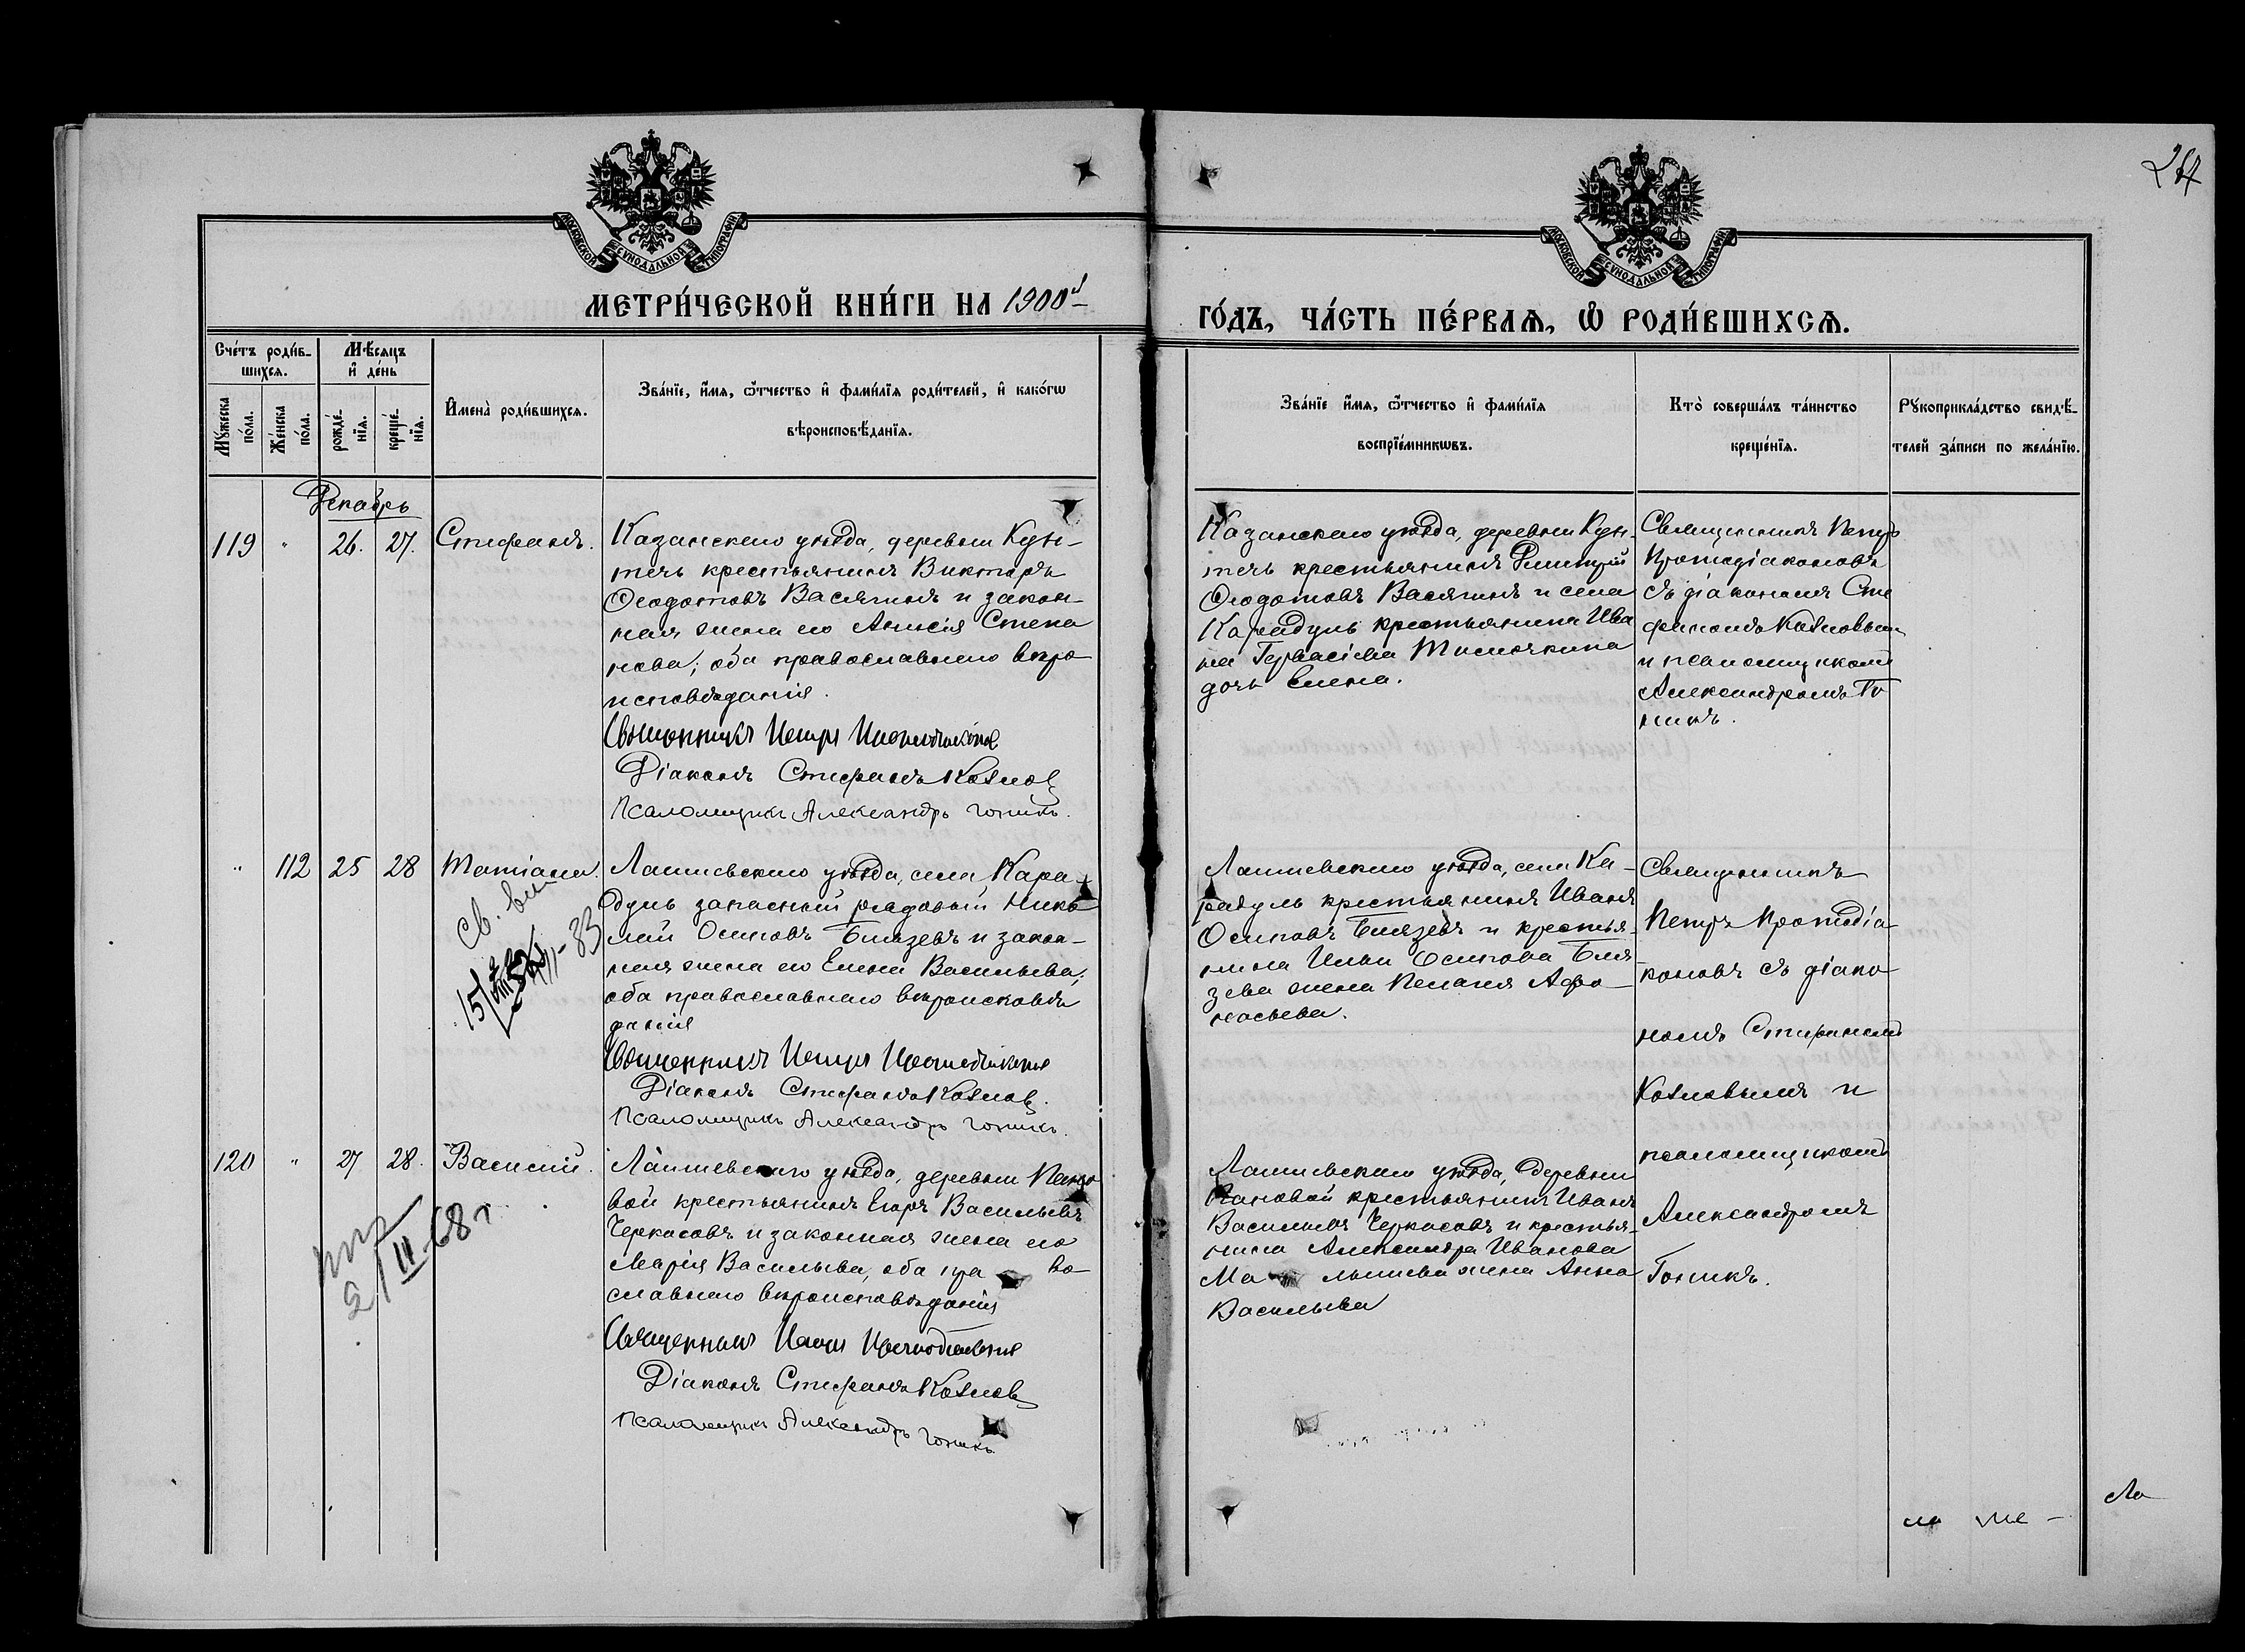 267
МОСКОВСКОЙ СѴНОДАЛЬНОЙ ТИПОГРАФІИ
МОСКОВСКОЙ СѴНОДАЛЬНОЙ ТИПОГРАФІИ
МЕТРИ́ЧЕСКОЙ КНИ́ГИ НА 1900й
ГО́ДЪ, ЧА́СТЬ ПЕ́РВАѦ, Ѽ РОДИ́ВШИХСѦ.
Сче́тъ роди́в-
шихсѧ.
Му́жеска по́ла.
Же́нска по́ла.
Мѣ́сѧцъ
и҆ де́нь
рожде́-
нїѧ.
креще́-
нїѧ.
И҆мена̀ роди́вшихсѧ.
Зва́нїе, и҆́мѧ, ѻ҆́тчество и҆ фами́лїѧ роди́телей, и҆ како́гѡ
вѣроисповѣ́данїѧ.
Зва́нїе и҆́мѧ, ѻ҆́тчество и҆ фами́лїѧ
воспрїе́мникѡвъ.
Кто̀ соверша́лъ та́инство
креще́нїѧ.
Рꙋкоприкла́дство свидѣ́-
телей за́писи по жела́нїю.
Декабрь
119 " 26. 27. Стефанъ.
Казанскаго уѣзда, деревни Кун-
течь крестьянинъ Викторъ
Ѳеодотовъ Васягинъ и закон-
ная жена его Анисія Степа
нова; оба православнаго вѣро
исповѣданія.
Священникъ Петръ Протодіаконовъ
Діаконъ Стефанъ Козловъ
Псаломщикъ Александръ Гоникъ.
Казанскаго уѣзда, деревни Кун-
течь крестьянинъ Димитрій
Ѳеодотовъ Васягинъ и села
Карадуль крестьянина Ива
на Гервасіева Тисичкина
дочь Елена.
Священникъ Петръ
Протодіаконовъ
съ діакономъ Сте
фаномъ Козловым
и псаломщикомъ
Александромъ Го
никъ.
" 112 25 28 Татіана.
Св.
Лаишевскаго уѣзда, села Кара-
дуль запасный рядовый Нико
лай Осиповъ Блязевъ и закон-
ная жена его Елена Васильева;
оба православнаго вѣроисповѣ
данія
Священникъ Петръ Протодіаконовъ
Діаконъ Стефанъ Козловъ.
Псаломщикъ Александръ Гоникъ.
Лаишевскаго уѣзда, села Ка-
радуль крестьянинъ Иванъ
Осиповъ Блязевъ и крестья-
нина Ильи Осипова Бля-
зева жена Пелагея Афо-
насьева.
Священникъ
Петръ Протодіа-
коновъ съ діако
номъ Стефаномъ
Козловымъ и
псаломщикомъ
Александромъ
Гоникъ.
120 " 27 28. Василій.
2/II-68 г
Лаишевскаго уѣзда, деревни Пано
вой крестьянинъ Егоръ Васильевъ
Черкасовъ и законная жена его
Марія Васильева, оба пра во-
славнаго вѣроисповѣданія
Священникъ Петръ Протодіаконовъ
Діаконъ Стефанъ Козловъ
Псаломщикъ Александръ Гоникъ.
Лаишевскаго уѣзда, деревни
Пановой крестьянинъ Иванъ
Васильевъ Черкасовъ и крестья-
нина Александра Иванова
Ма льшева жена Анна
Васильева